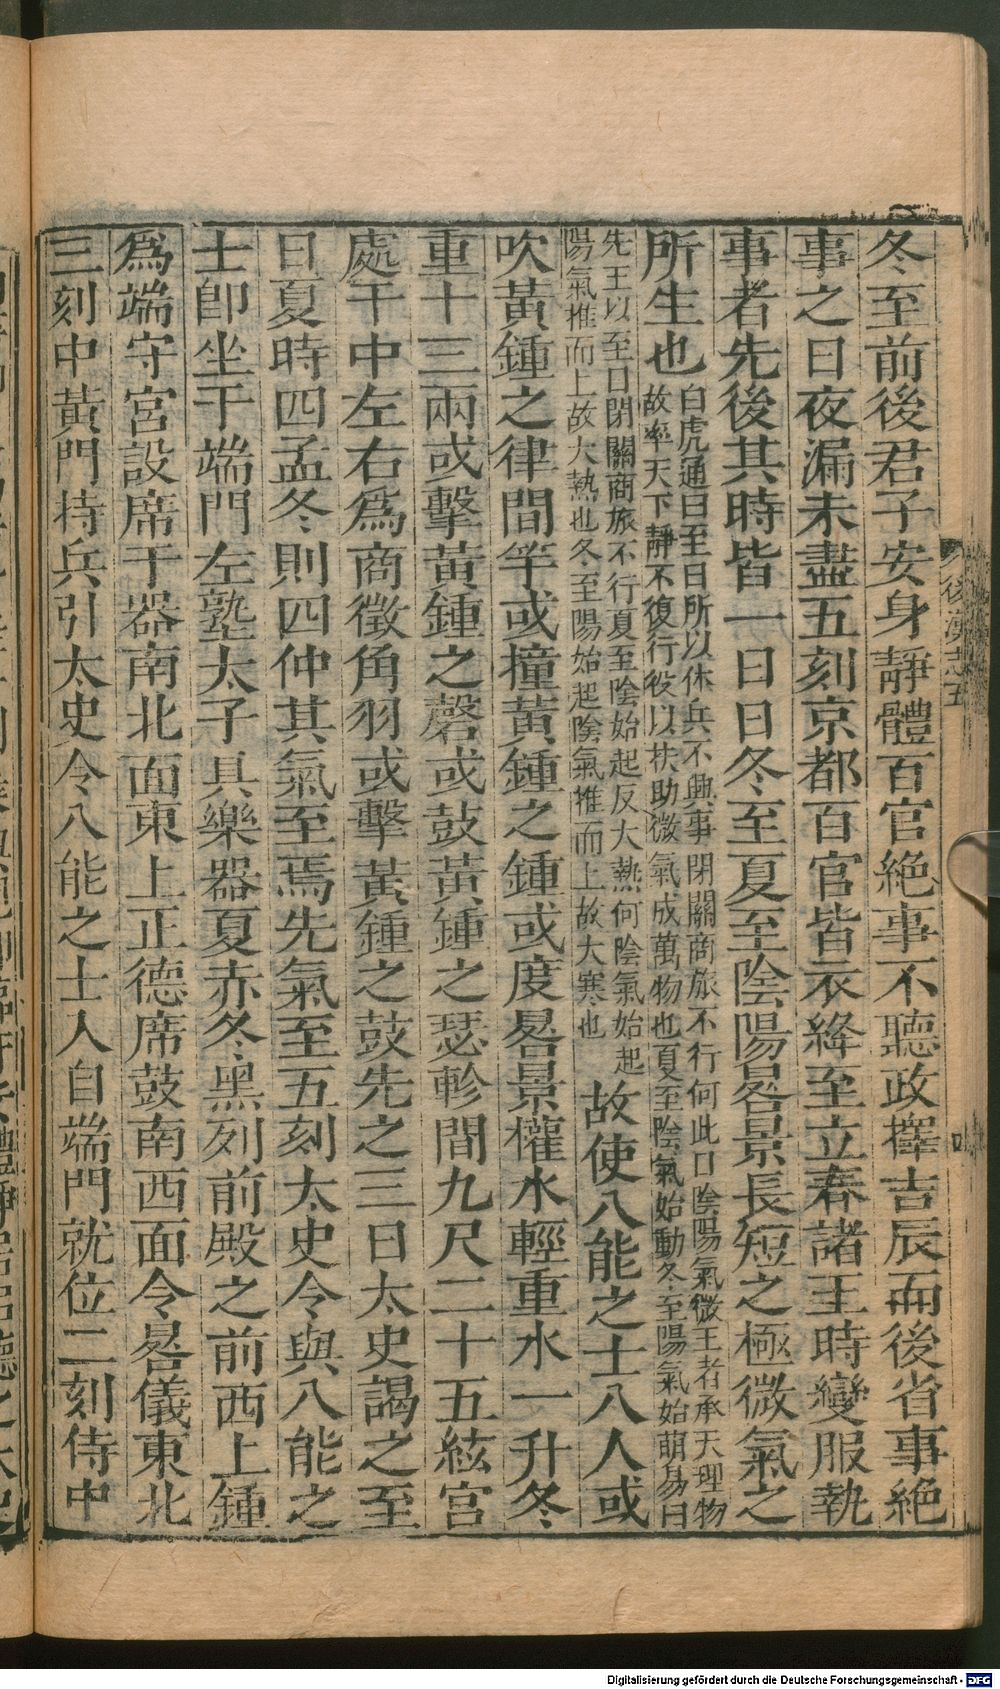 冬至前後君子安身靜體百官絶事不聽政擇吉辰而後省事絶
事之日夜漏未盡五刻京都百官皆衣絳至立春諸王時變服執
事者先後其時皆一日日冬至夏至陰陽晷景長短之極微氣之
所生也
白虎通曰至日所以休兵不興事閉關商旅不行何此日陰陽氣微王者承天理物
故率天下靜不復行役以扶助微氣成萬物也夏至陰氣始動冬至陽氣始萌易曰
先王以至日閉關商旅不行夏至陰始起反大熱何陰氣始起
陽氣推而上故大熱也冬至陽始起陰氣推而上故大寒也
故使八能之士八人或
吹黃鍾之律間竽或撞黃鍾之鍾或度晷景權水輕重水一升冬
重十三兩或擊黃鍾之磬或鼓黃鍾之瑟軫間九尺二十五絃宮
處于中左右爲商徵角羽或擊黃鍾之鼓先之三日太史謁之至
日夏時四孟冬則四仲其氣至焉先氣至五刻太史令與八能之
士卽坐于端門左塾太子具樂器夏赤冬黑列前殿之前西上鍾
爲端守宮設席于器南北面東上正德席鼓南西面令晷儀東北
三刻中黃門持兵引太史令八能之士入自端門就位二刻侍中
後漢志五
四
Digitalisierung gefördert durch die Deutsche Forschungsgemeinschaft - DFG